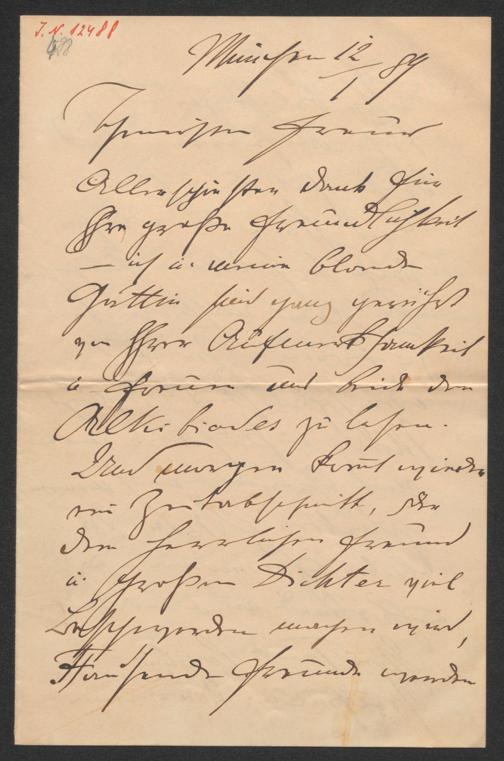 J. N. 12488
488
München 12/1 89
Theuerster Freund
Allerschönsten Dank für
Ihre große Freundlichkeit
– ich u. meine blonde
Gattin sind ganz gerührt
von Ihrer Aufmerksamkeit
u. freuen uns beide den
Alkibiades zu lesen.
Und morgen komt wieder
ein Zeitabschnitt, der
dem herrlichen Freund
u. großen Dichter viel
Beschwerden machen wird,
Tausende Freunde werden